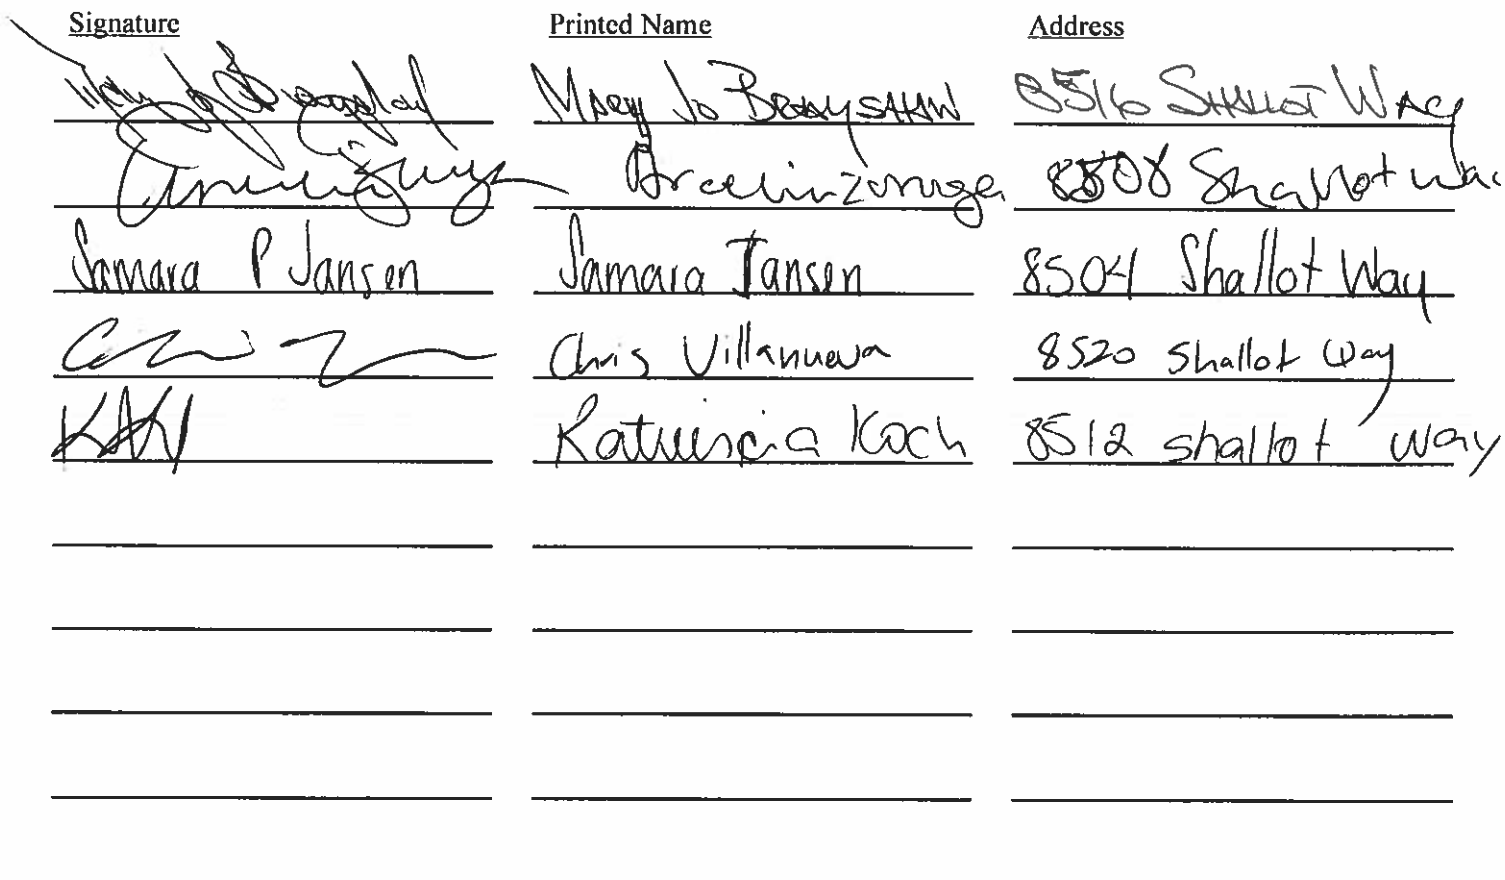 Signature Printed Name Address
Mary Jo 8516 Shallot Way
8508 Shallot Way
Samara P Jansen Samara Jansen 8504 Shallot Way
Chris Villanueva 8520 Shallot Way
Koch 8512 shallot way